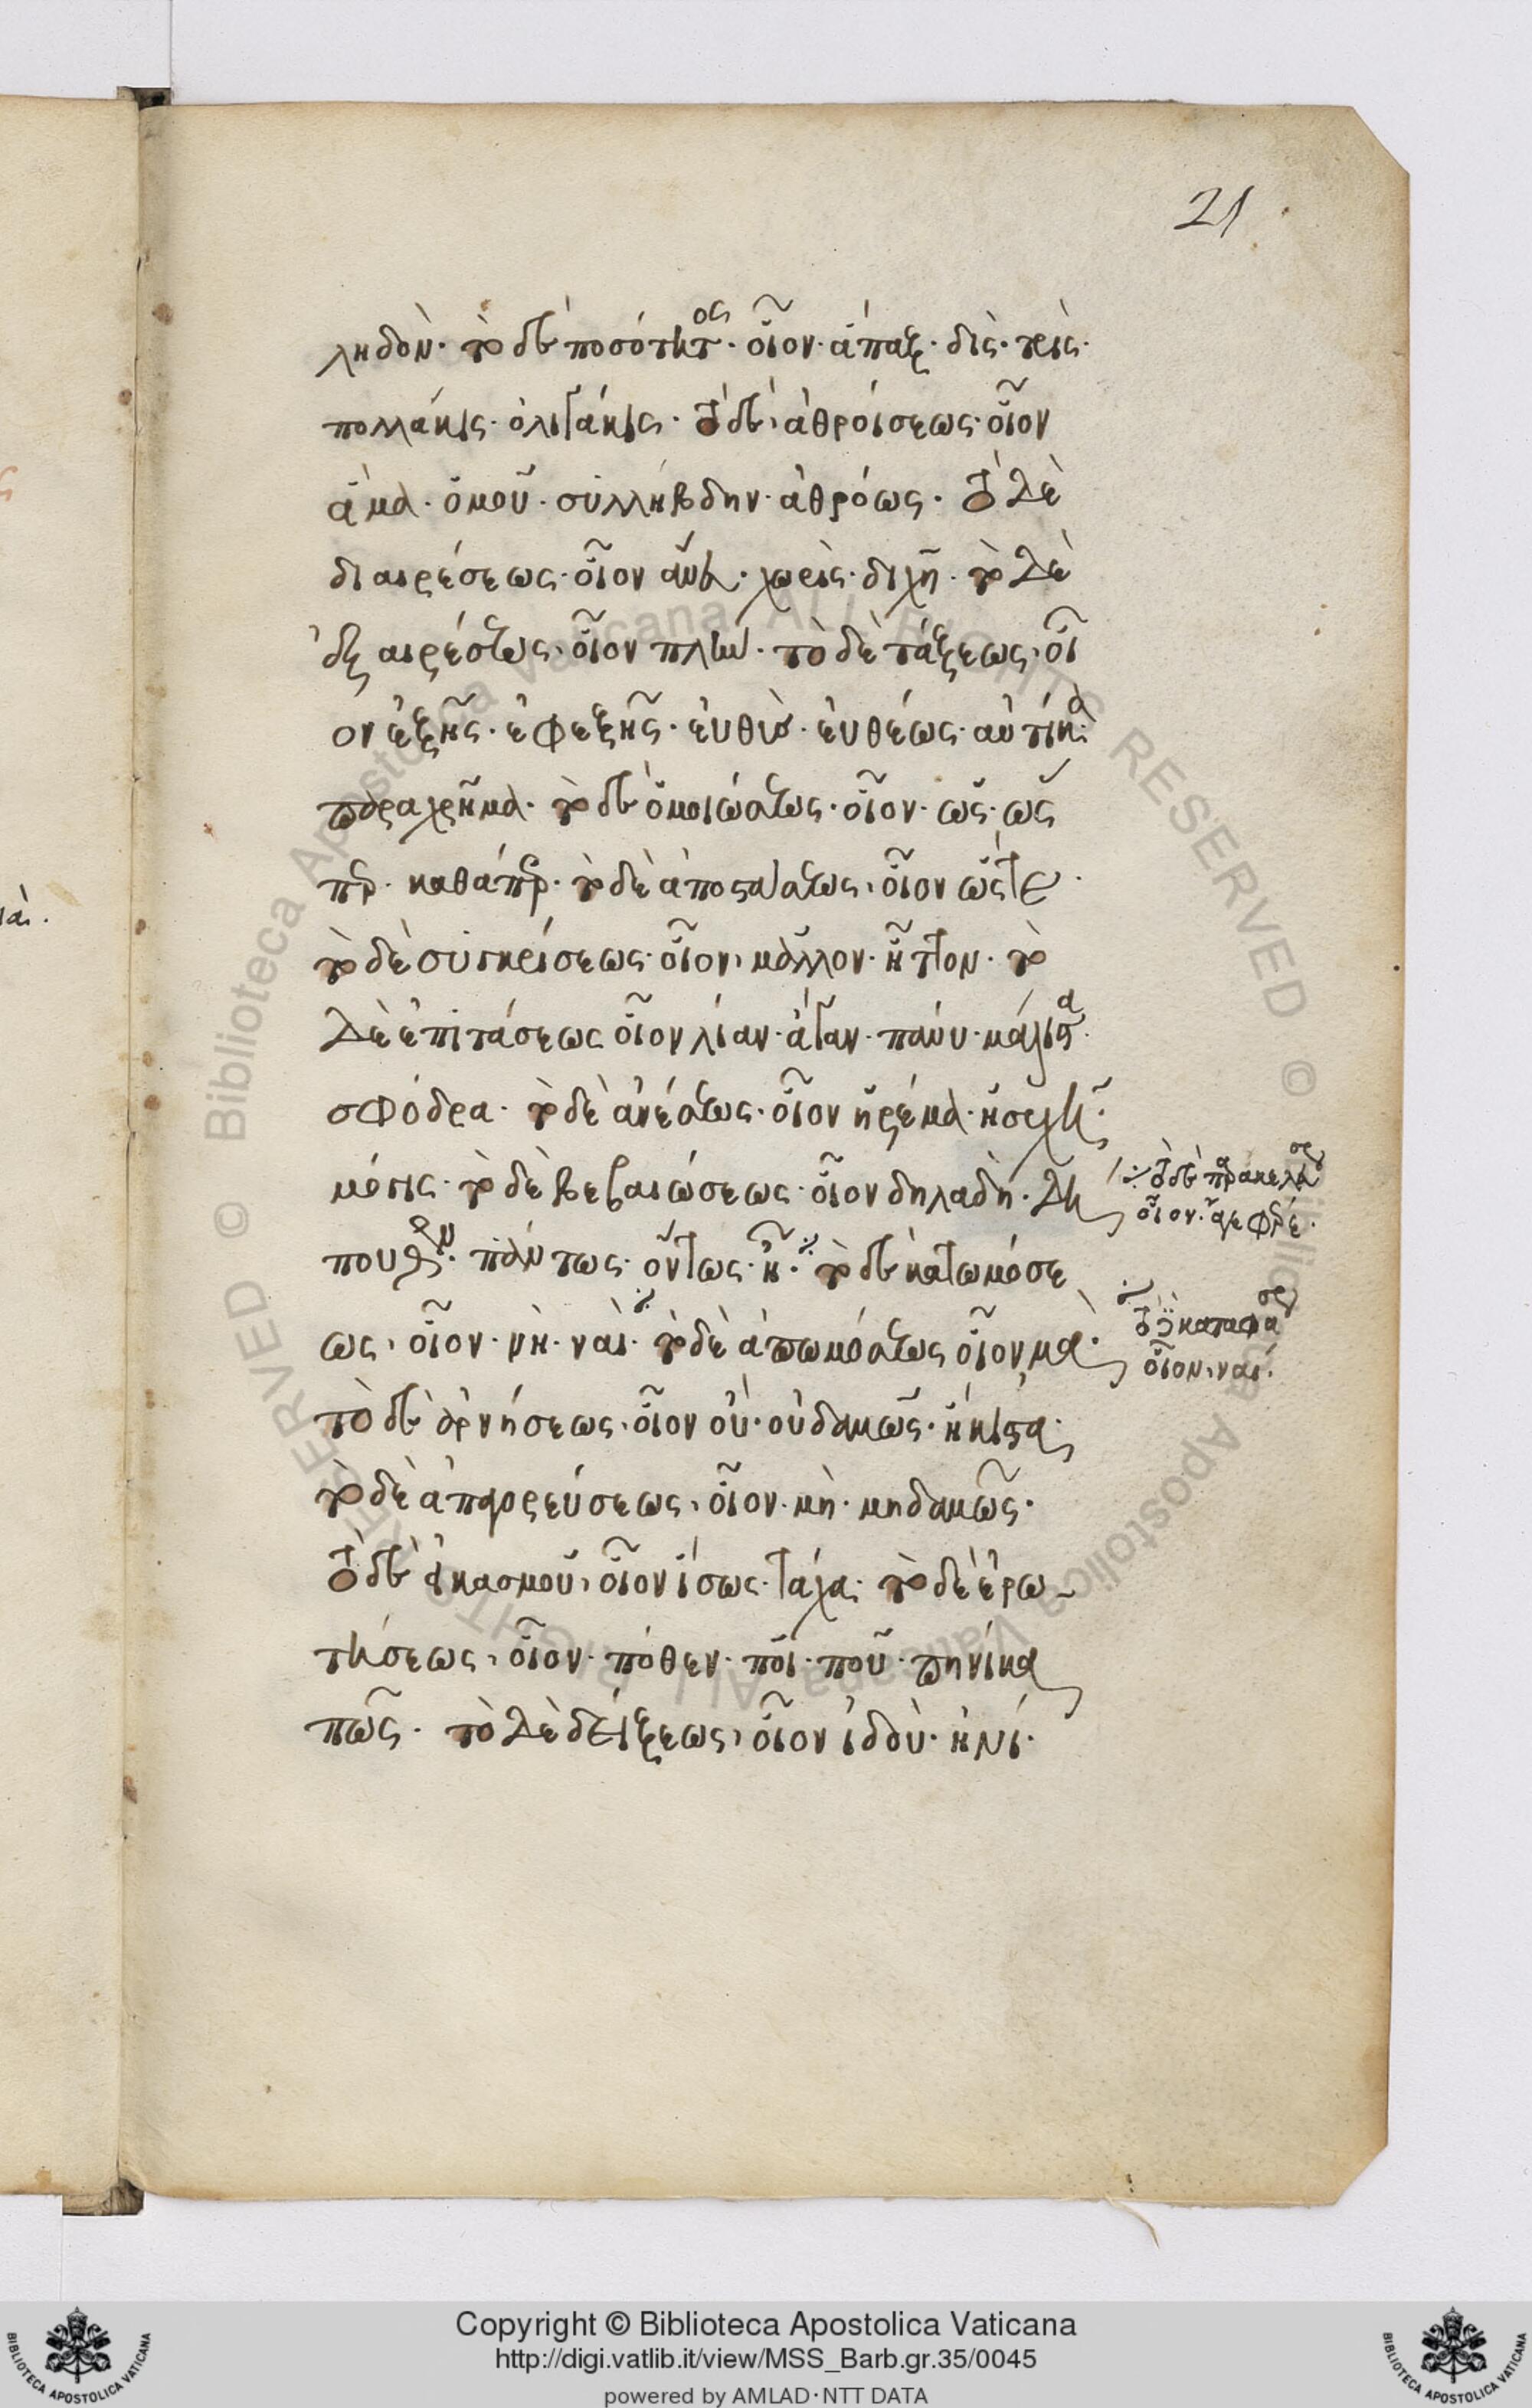 21
ληδόν· τὸ δὲ ποσότητος· οἷον· ἅπαξ· δίς· τρίς·
πολλάκις· ὀλιγάκις· τὸ δὲ, ἀθροίσεως· οἷον
ἅμα· ὁμοῦ· συλλήβδην· ἀθρόως· τὸ δὲ
διαιρέσεως· οἷον ἄνευ· χωρίς· διχῆ· τὸ δὲ
ἐξαιρέσεως, οἷον πλήν· τὸ δὲ τάξεως, οἷ
ον ἑξῆς· ἐφεξῆς· εὐθύς· εὐθέως· αὐτίκα·
παραχρῆμα· τὸ δὲ ὁμοιώσεως· οἷον· ὡς· ὥς
περ· καθάπερ· τὸ δὲ ἀποστάσεως, οἷον ὥστε·
τὸ δὲ συγκρίσεως· οἷον, μᾶλλον· ἧττον· τὸ
δὲ ἐπιτάσεως οἷον λίαν· ἄγαν· πάνυ· μάλιστα·
σφόδρα· τὸ δὲ ἀνέσεως· οἷον ἠρέμα· ἡσυχῆ·
μόγις· τὸ δὲ βεβαιώσεως· οἷον δηλαδή· δή
πουθεν· πάντως· ὄντως· ἦ· τὸ δὲ κατωμόσε
ως, οἷον· νή· ναί· τὸ δὲ ἀπωμόσεως οἷον μά·
τὸ δὲ ἀρνήσεως, οἷον οὐ· οὐδαμῶς· ἥκιστα·
τὸ δὲ ἀπαγορεύσεως, οἷον· μή· μηδαμῶς·
τὸ δὲ εἰκασμοῦ, οἷον ἴσως· τάχα· τὸ δὲ ἐρω
τήσεως, οἷον· πόθεν· ποῖ· ποῦ· πηνίκα
πῶς· τὸ δὲ δείξεως, οἷον ἰδού· ἠνί·
οἷον· ἄγε φέρε·
οἷον, ναί·
Copyright © Biblioteca Apostolica Vaticana
http://digi.vatlib.it/view/MSS_Barb.gr.35/0045
powered by AMLAD·NTT DATA